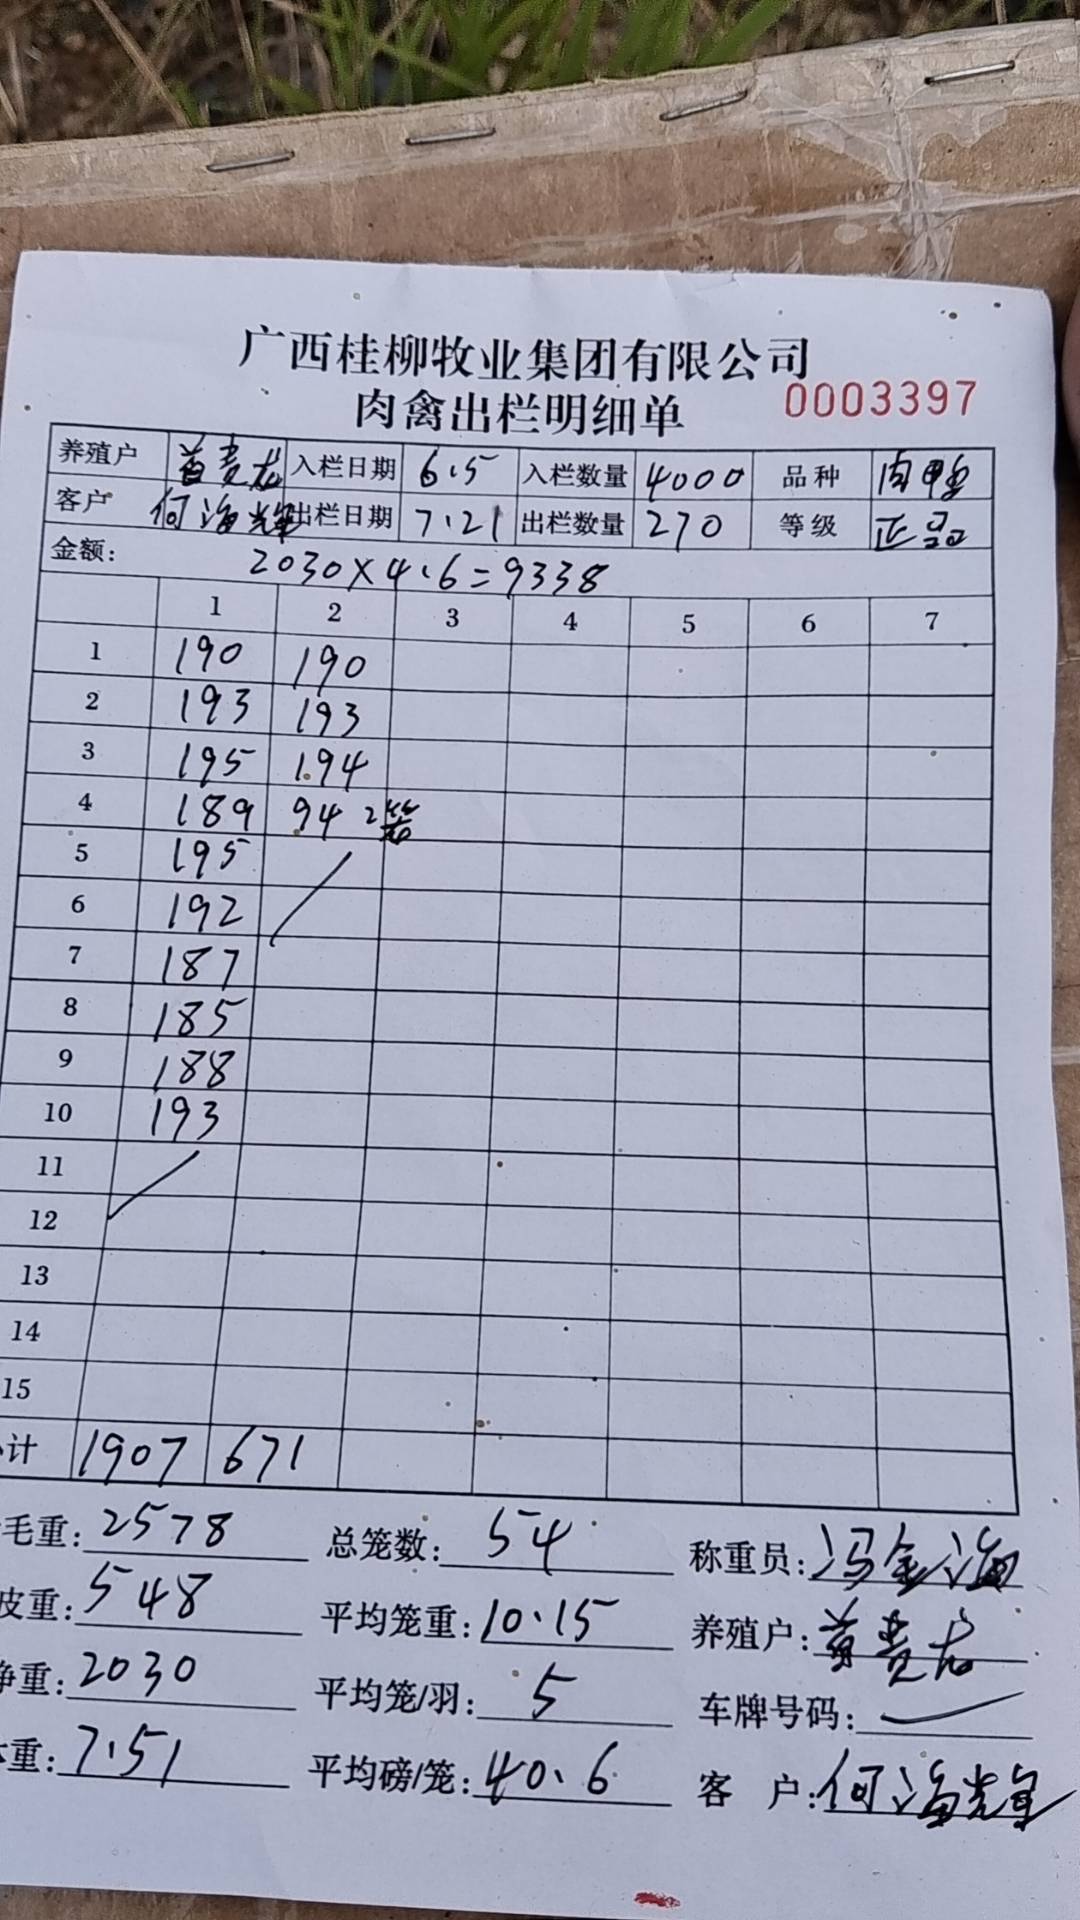 广西桂柳牧业集团有限公司
肉禽出栏明细单 0003397
养殖户 黄贵龙 入栏日期 6.5 入栏数量 4000 品种 肉鸭
客户 何海辉 出栏日期 7.21 出栏数量 270 等级 正品
金额: 2030×4.6=9338
1 2 3 4 5 6 7
1 190 190
2 193 193
3 195 194
4 189 94 2笼
5 195
6 192
7 187
8 185
9 188
10 193
11
12
13
14
15
计 1907 671
毛重: 2578 总笼数: 54 称重员: 冯金海
皮重: 548 平均笼重: 10.15 养殖户: 黄贵龙
净重: 2030 平均笼/羽: 5 车牌号码:
重: 7.51 平均磅/笼: 40.6 客 户: 何海辉